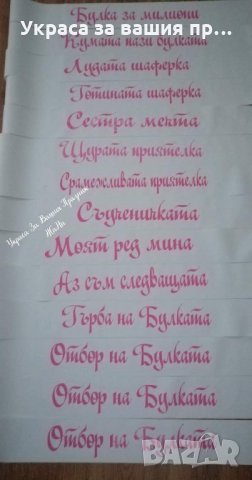 Украса за вашия пр...
Булка за милиони
Кумата пази булката
Лудата шаферка
Готината шаферка
Сестра мечта
Щурата приятелка
Срамежливата приятелка
Съученичката
Украса За Вашия Празник
ЖаНи
Моят ред мина
Аз съм следващата
Гърба на Булката
Отбор на Булката
Отбор на Булката
Отбор на Булката
BAZAR